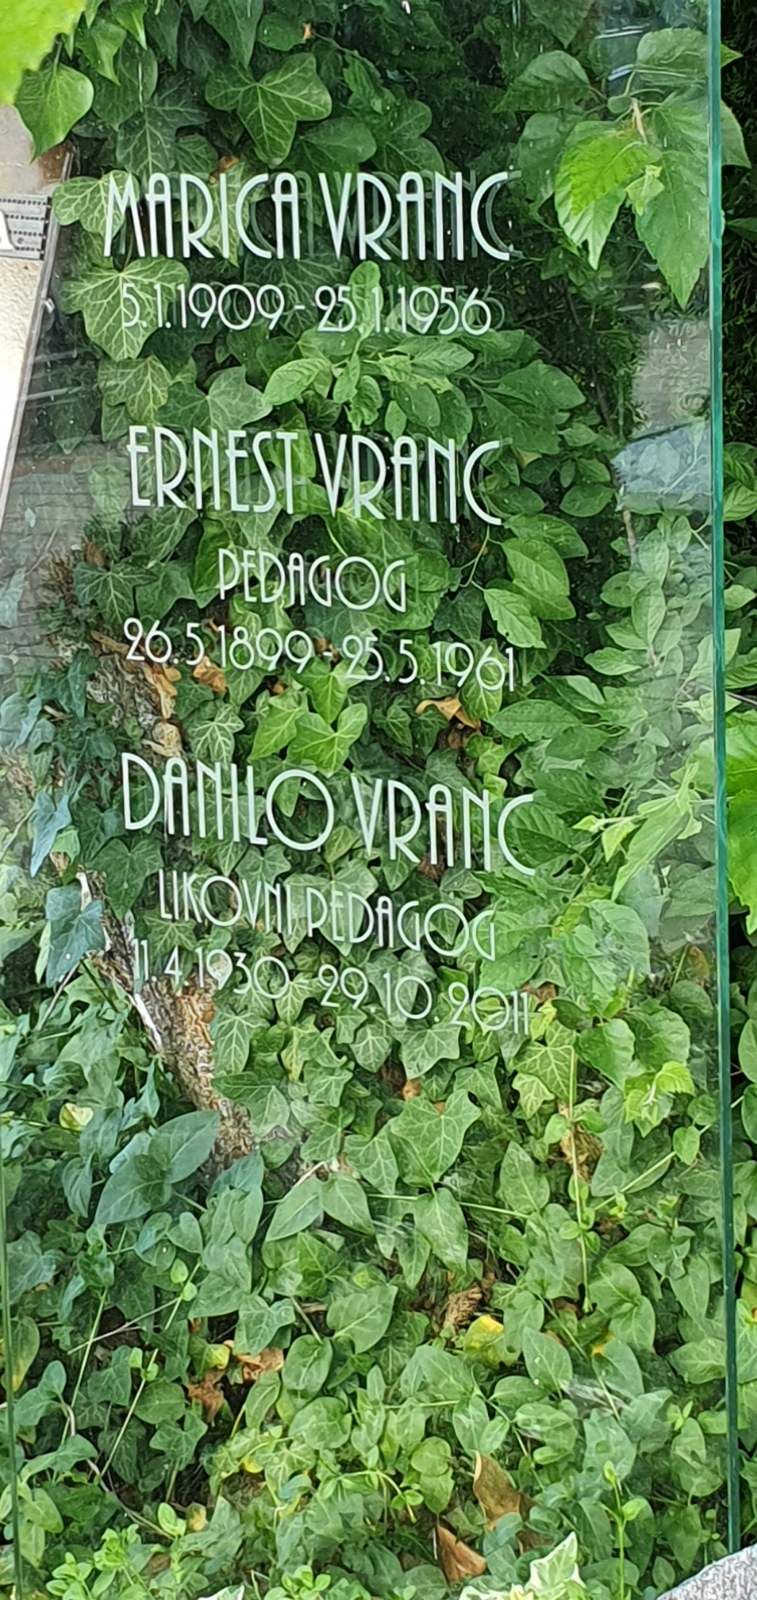 MARICA VRANC
5.1.1909 - 25.1.1956
ERNEST VRANC
PEDAGOG
26.5.1899 - 25.5.1961
DANILO VRANC
LIKOVNI PEDAGOG
11.4.1930 - 29.10.2011